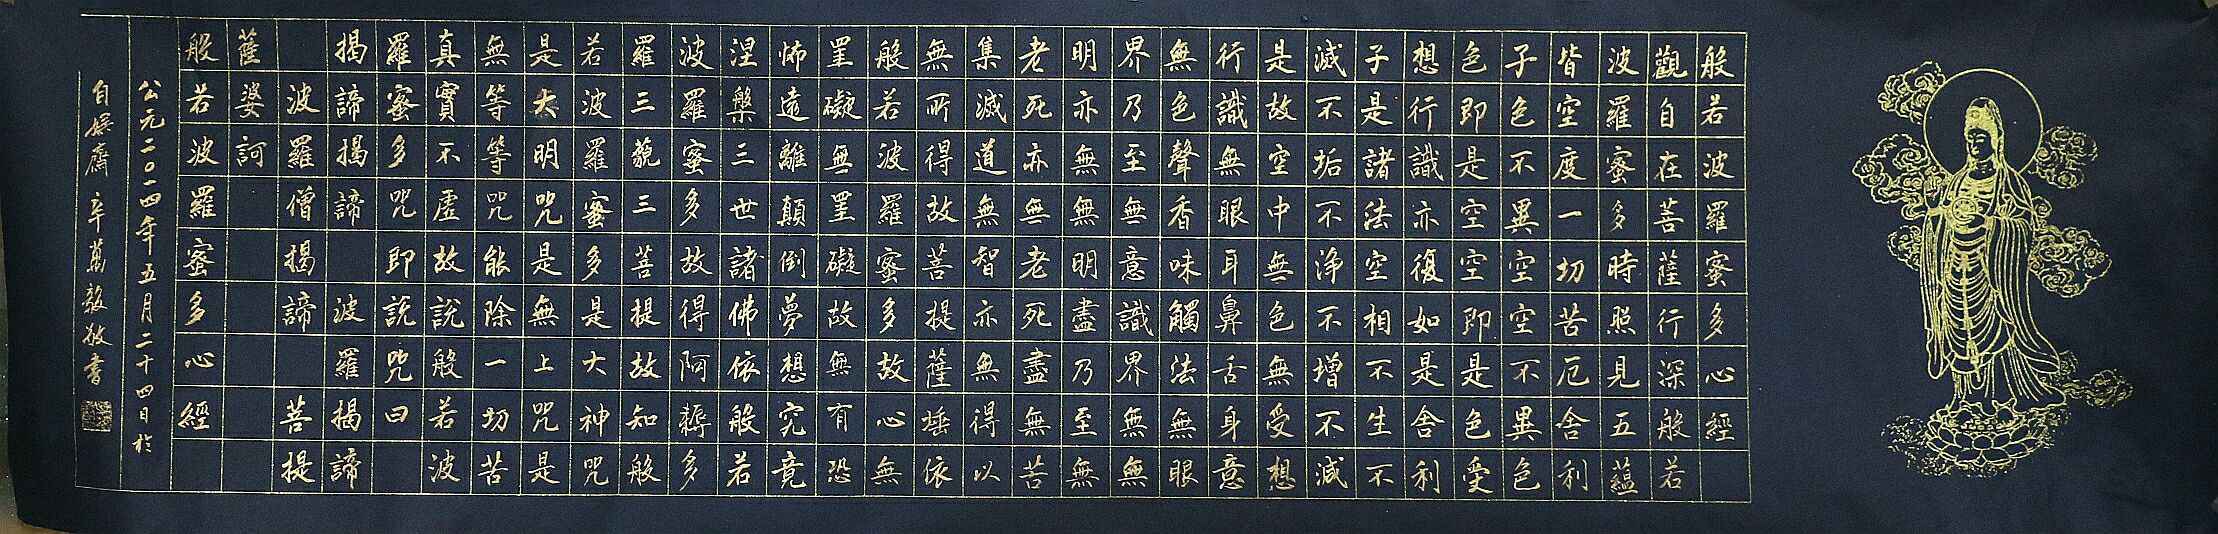 般若波羅蜜多心經
觀自在菩薩行深般若
波羅蜜多時照見五蘊
皆空度一切苦厄舍利
子色不異空空不異色
色即是空空即是色受
想行識亦復如是舍利
子是諸法空相不生不
滅不垢不淨不增不減
是故空中無色無受想
行識無眼耳鼻舌身意
無色聲香味觸法無眼
界乃至無意識界無無
明亦無無明盡乃至無
老死亦無老死盡無苦
集滅道無智亦無得以
無所得故菩提薩埵依
般若波羅蜜多故心無
罣礙無罣礙故無有恐
怖遠離顛倒夢想究竟
涅槃三世諸佛依般若
波羅蜜多故得阿耨多
羅三藐三菩提故知般
若波羅蜜多是大神咒
是大明咒是無上咒是
無等等咒能除一切苦
真實不虛故說般若波
羅蜜多咒即說咒曰
揭諦揭諦 波羅揭諦
波羅僧揭諦 菩提
薩婆訶
般若波羅蜜多心經
公元二〇一四年五月二十四日於
自娛齋 辛萬毅敬書